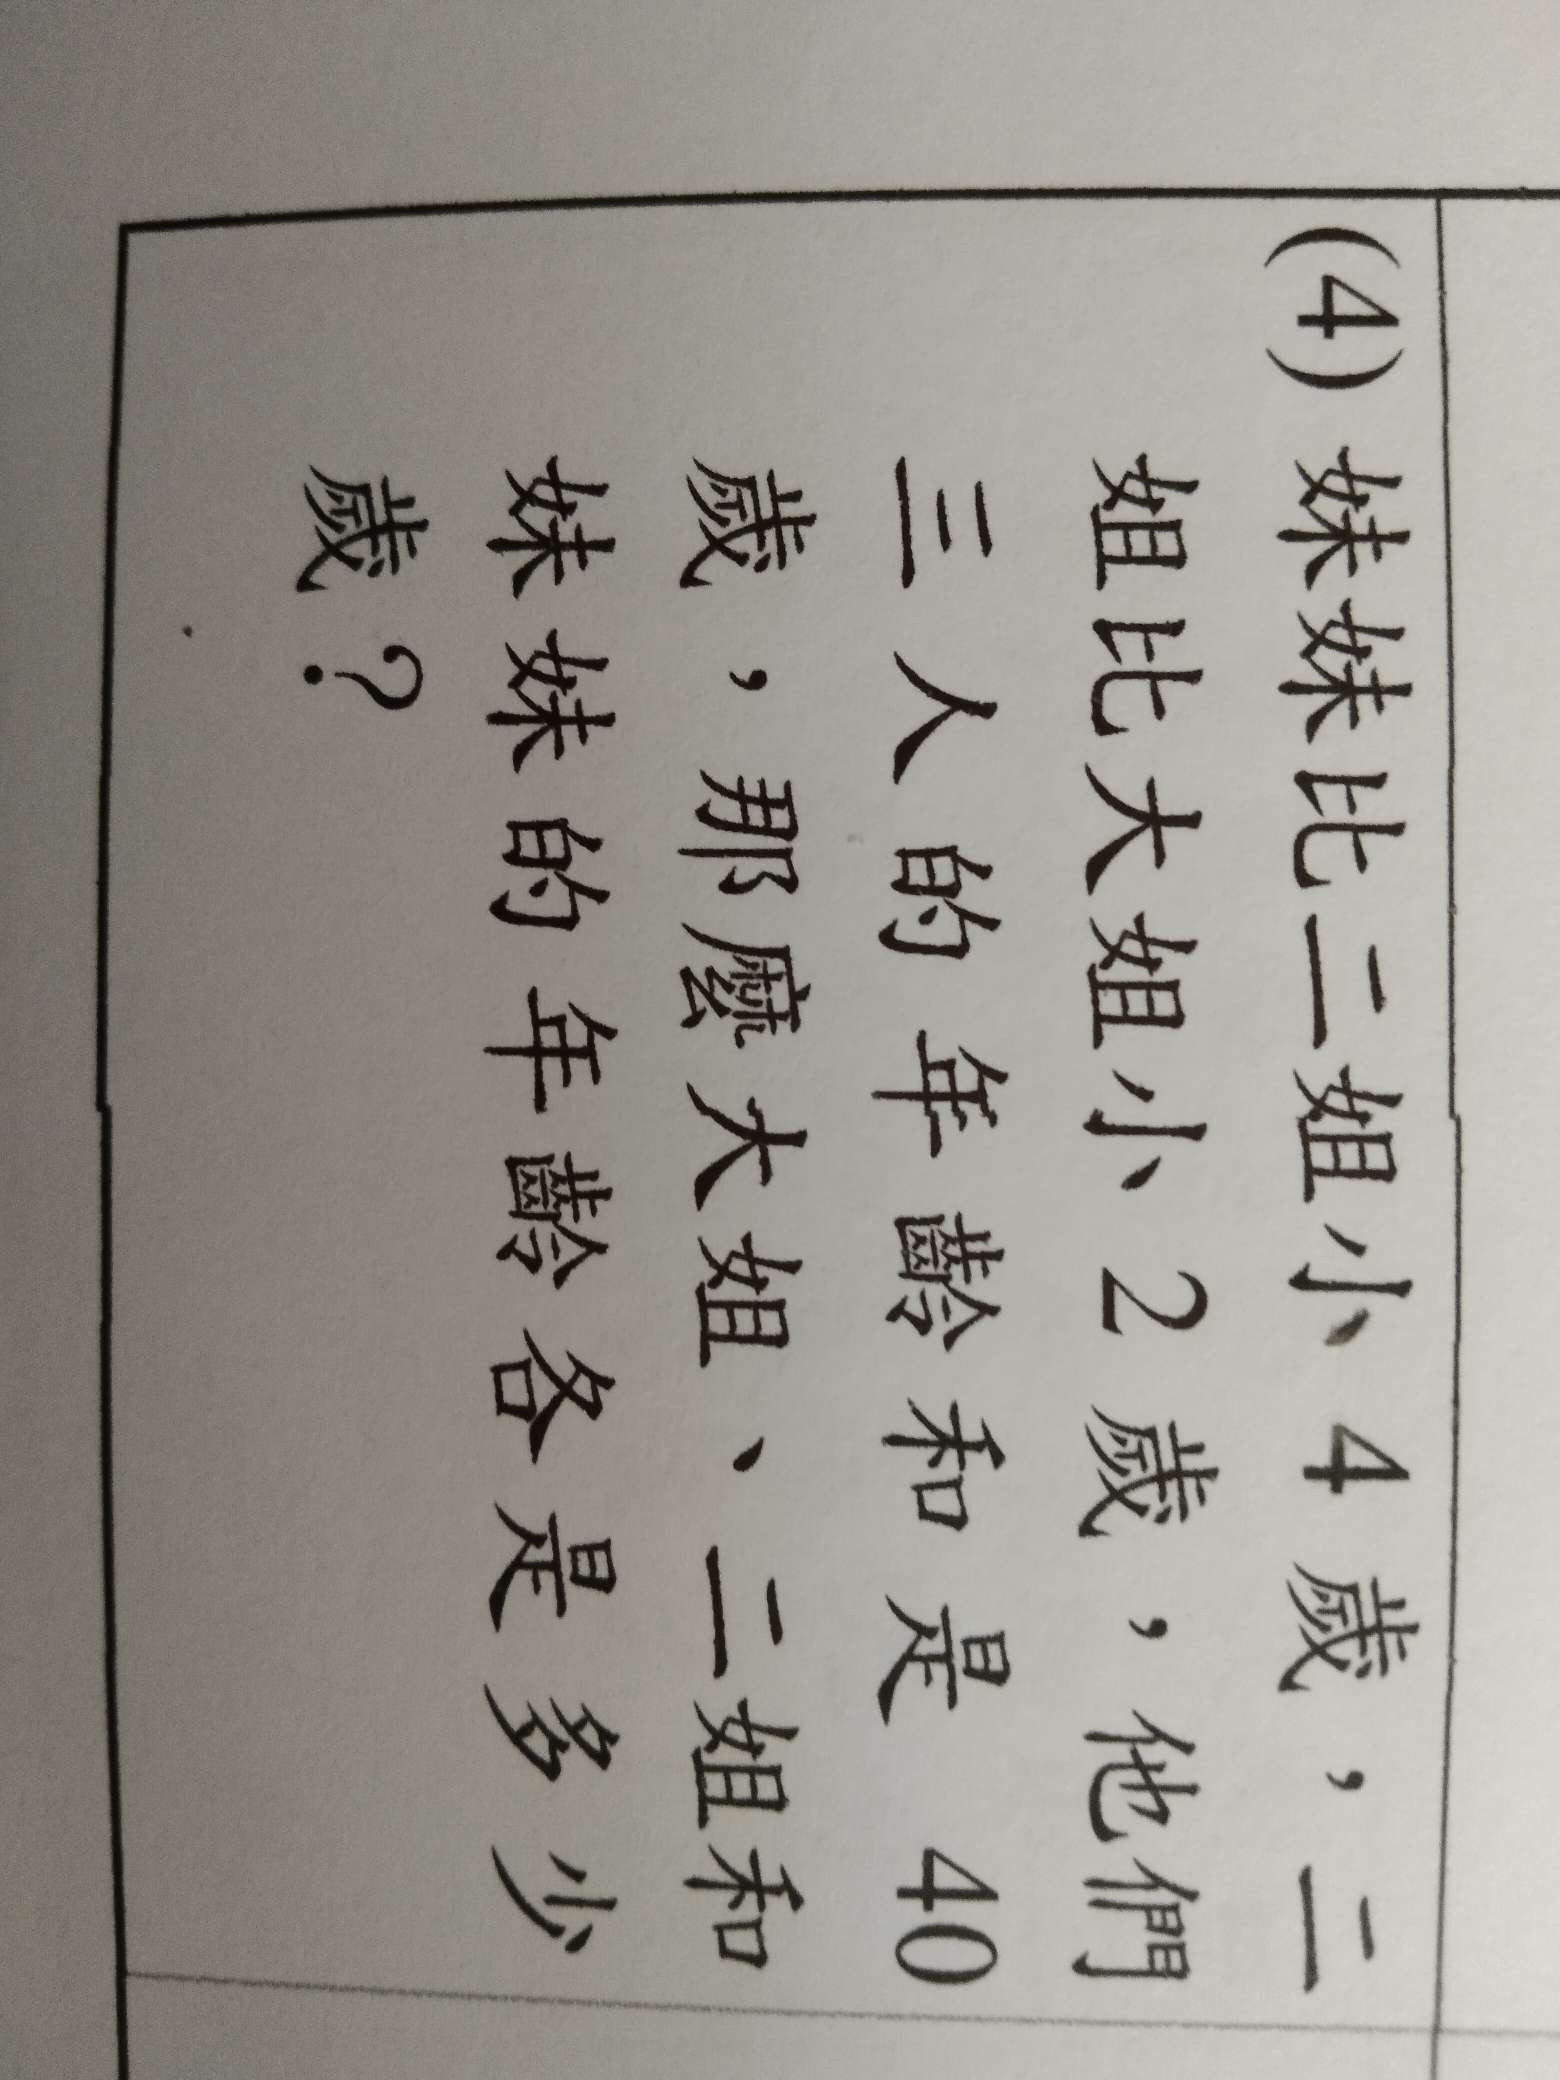 (4) 妹妹比二姐小 4 歲，二
姐比大姐小 2 歲，他們
三人的年齡和是 40
歲，那麼大姐、二姐和
妹妹的年齡各是多少
歲？